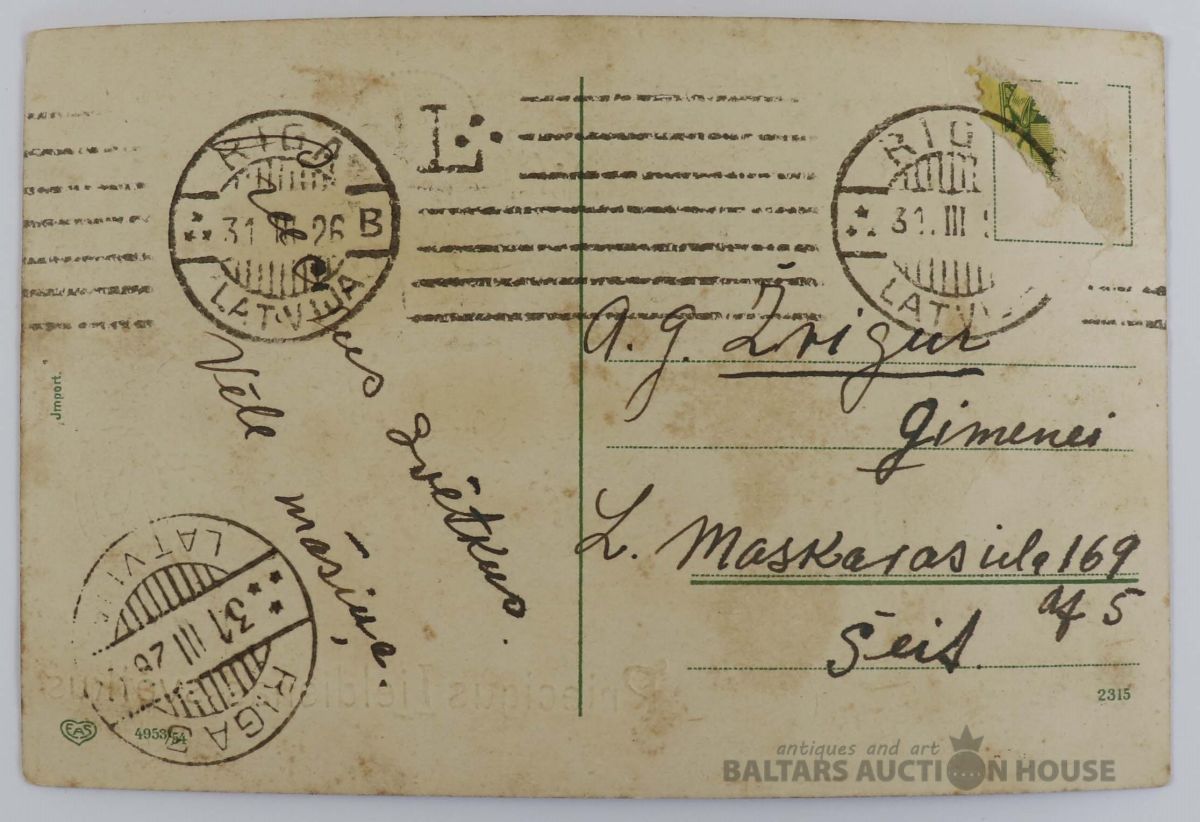 RIGA
31 III 26 B
LATVIJA
L.
RIG
31. III
LATVI
Jmport.
zvētkus.
Vēle
māsiņa.
A. g. Zvigur
gimenei
L. Maskavas iela 169
df 5
Šeit.
LATVI
31 III 26
RIGA
Priecigus Lieldien
EAS
4953/54
2315
antiques and art
BALTARS AUCTION HOUSE